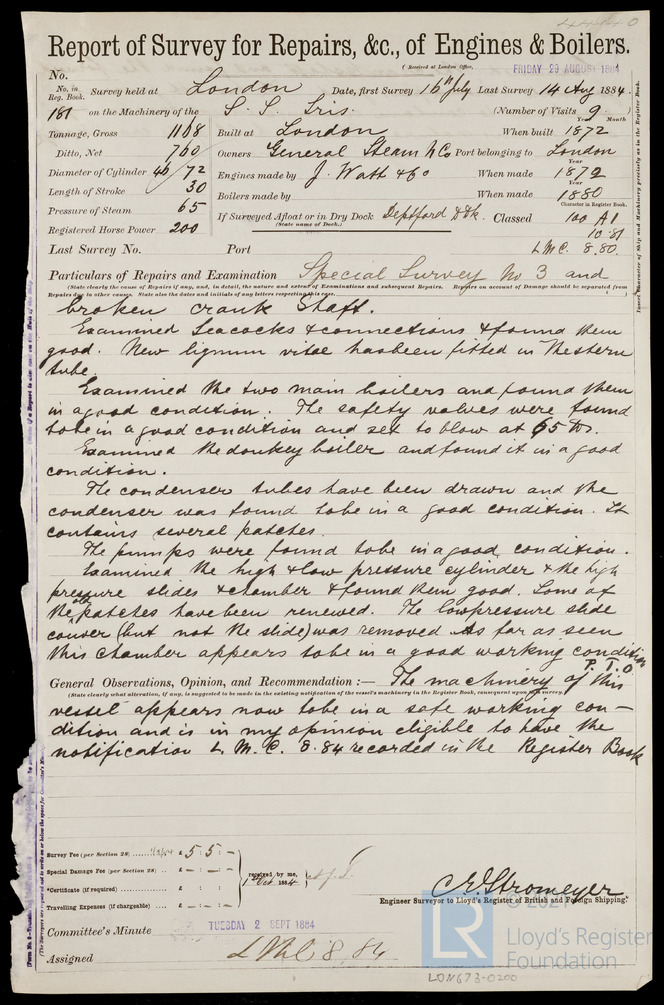 44440
Report of Survey for Repairs, &c., of Engines & Boilers.
(Received at London Office, FRIDAY 29 AUGUST 1884)
No.
No. in Reg. Book. Survey held at London Date, first Survey 16th July Last Survey 14 Aug 1884.
181 on the Machinery of the S. S. Iris. (Number of Visits 9)
Tonnage, Gross 1108 Built at London When built Year 1872 Month
Ditto, Net 700 Owners General Steam N Co Port belonging to London
Diameter of Cylinder 40/72 Engines made by J. Watt & Co When made Year 1872
Length of Stroke 30 Boilers made by When made Year 1880
Pressure of Steam 65 If Surveyed Afloat or in Dry Dock Deptford dk. Classed Character in Register Book. 100 A1
(State name of Dock.) 10.81
Registered Horse Power 200
Last Survey No. Port L.M.C. 8.80.
Particulars of Repairs and Examination Special Survey No 3 and
(State clearly the cause of Repairs if any, and, in detail, the nature and extent of Examinations and subsequent Repairs. Repairs on account of Damage should be separated from
Repairs due to other causes. State also the dates and initials of any letters respecting this case.)
broken crank shaft.
Examined Seacocks & connections & found them
good. New lignum vitae has been fitted in the stern
tube.
Examined the two main boilers and found them
in a good condition. The safety valves were found
to be in a good condition and set to blow at 65 lbs.
Examined the donkey boiler and found it in a good
condition.
The condenser tubes have been drawn and the
condenser was found to be in a good condition. It
contains several patches.
The pumps were found to be in a good condition.
Examined the high & low pressure cylinder & the high
pressure slides & chamber & found them good. Some of
the old patches have been renewed. The low pressure slide
couver (but not the slide) was removed. As far as seen
this chamber appears to be in a good working condition
P.T.O
General Observations, Opinion, and Recommendation:— The machinery of this
(State clearly what alteration, if any, is suggested to be made in the existing notification of the vessel's machinery in the Register Book, consequent upon this survey.
vessel appears now to be in a safe working con-
dition and is in my opinion eligible to have the
notification L.M.C. 8.84 recorded in the Register Book
Survey Fee (per Section 28) £ 5 : 5 : –
Special Damage Fee (per Section 28) £ – : – : –
*Certificate (if required) £ : :
Travelling Expenses (if chargeable) £ – : – : –
received by me,
1st Oct 1884
C.E. Stromeyer
Engineer Surveyor to Lloyd's Register of British and Foreign Shipping.
Committee's Minute TUESDAY 2 SEPT 1884
Assigned L.M.C. 8.84
LR
© 2021
Lloyd's Register
Foundation
LON673-0200